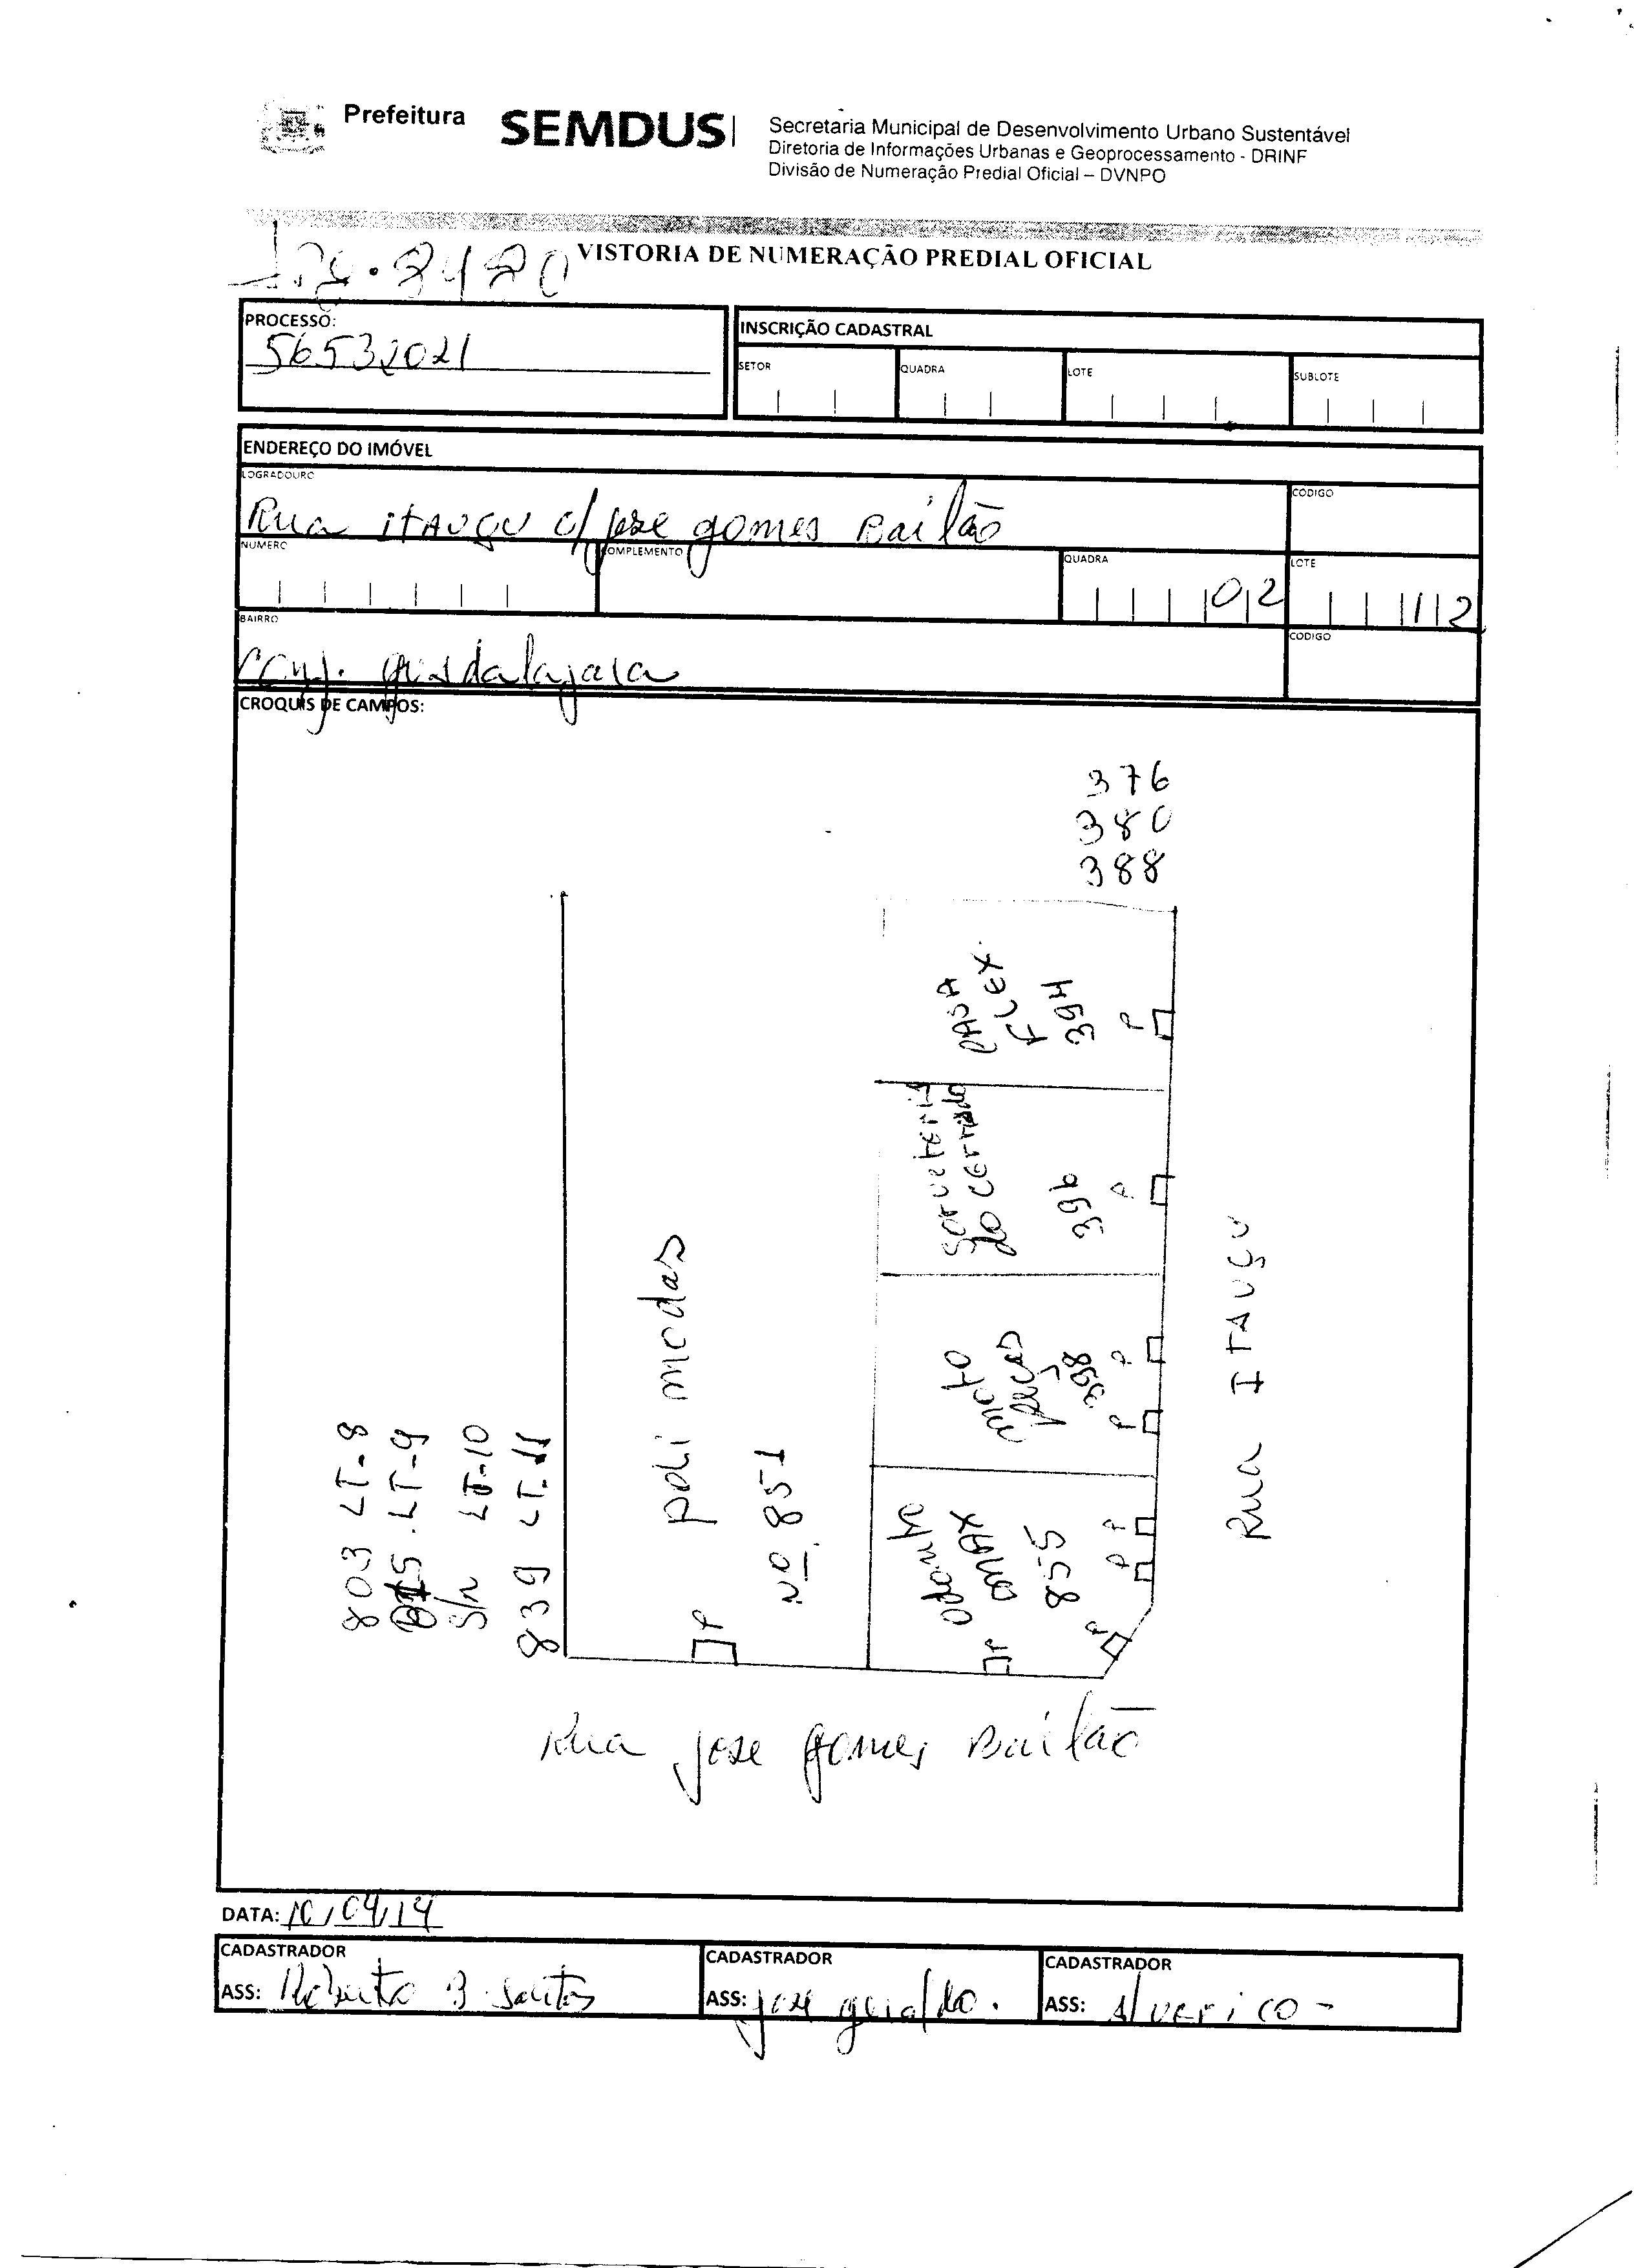 Prefeitura
SEMDUS
Secretaria Municipal de Desenvolvimento Urbano Sustentável
Diretoria de Informações Urbanas e Geoprocessamento - DRINF
Divisão de Numeração Predial Oficial – DVNPO
VISTORIA DE NUMERAÇÃO PREDIAL OFICIAL
PROCESSO:
56532021
INSCRIÇÃO CADASTRAL
SETOR
QUADRA
LOTE
SUBLOTE
ENDEREÇO DO IMÓVEL
LOGRADOURO
CÓDIGO
Rua ITAUÇU c/ jose gomes Bailão
NUMERO
COMPLEMENTO
QUADRA
02
LOTE
112
BAIRRO
CÓDIGO
Conj. guadalajara
CROQUIS DE CAMPOS:
376
380
388
CASA
FLEX
394
P
sorveteria
do cerrado
396
P
moto
peças
398
P
P
odonto
MAX
855
P
P
P
P
poli modas
Nº 851
P
803 LT-8
LT-9
S/N LT-10
839 LT-11
Rua ITAUÇU
Rua jose gomes Bailão
DATA: 10/04/14
CADASTRADOR
ASS: Roberto B. Santos
CADASTRADOR
ASS: jose geraldo.
CADASTRADOR
ASS: Alverico -